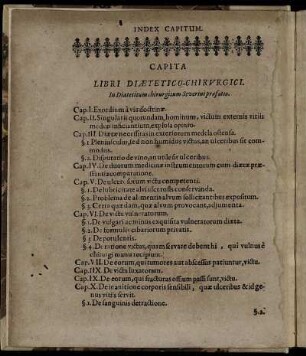 INDEX CAPITUM.
CAPITA
LIBRI DIÆTETICO-CHIRVRGICI.
In Diæteticum chirurgicum Severini præfatio.
Cap. I. Exordium à via doctrinæ.
Cap. II. Singularii quorundam, hominum, victum externis vitiis
medicis indicantium, explosa opinio.
Cap. III. Diætæ necessitas in exteriorum medela ostensa.
§. 1. Plenissicdus, sed non humidus victus, an ulceribus sit com-
modus.
§. 2. Disputatio de vino, an utile sit ulceribus.
Cap. IV. De duorum medicinæ instrumentorum cum diæta præ-
stantia comparatione.
Cap. V. De ulcere, eorum victu competenti.
§. 1. De lubricitate alvi ulceratis conservanda.
§. 2. Problema de alimentis alvum sollicitantibus expositum.
§. 3. Certa quædam, quæ alvum provocant, alimenta.
Cap. VI. De victu vulneratorum.
§. 1. De vulgari ac minus exquisita vulneratorum diæta.
§. 2. De formulis ciborum privatis.
§. 3. De potulentis.
§. 4. De ratione victus, quam servare debent hi, qui vulnus è
chirurgi manu receperunt.
Cap. VII. De eorum, qui tumores aut abscessus patiuntur, victu.
Cap. IIX. De victu luxatorum.
Cap. IX. De eorum, qui fracturas ossium passi sunt, victu.
Cap. X. De inanitione corporis sensibili, quæ ulceribus & id ge-
nus vitiis servit.
§. 1. De sanguinis detractione.
§. 2.